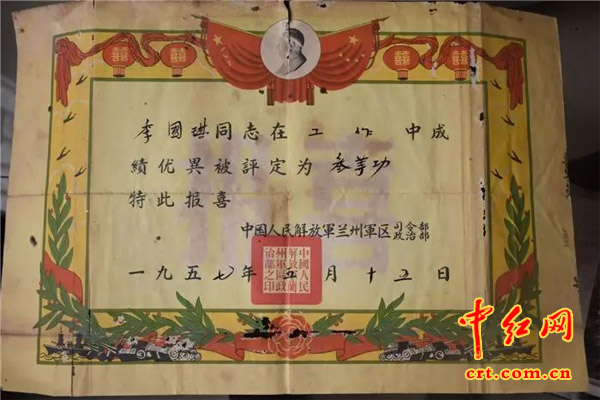 囍 囍 囍 囍
李國琪同志在工作中成
績优異被評定为叁等功
特此报喜
中國人民解放軍兰州軍区司令部
政治部
一九五七年五月十五日
中國人民
解放軍蘭
州軍區政
治部之印
中红网
crt.com.cn